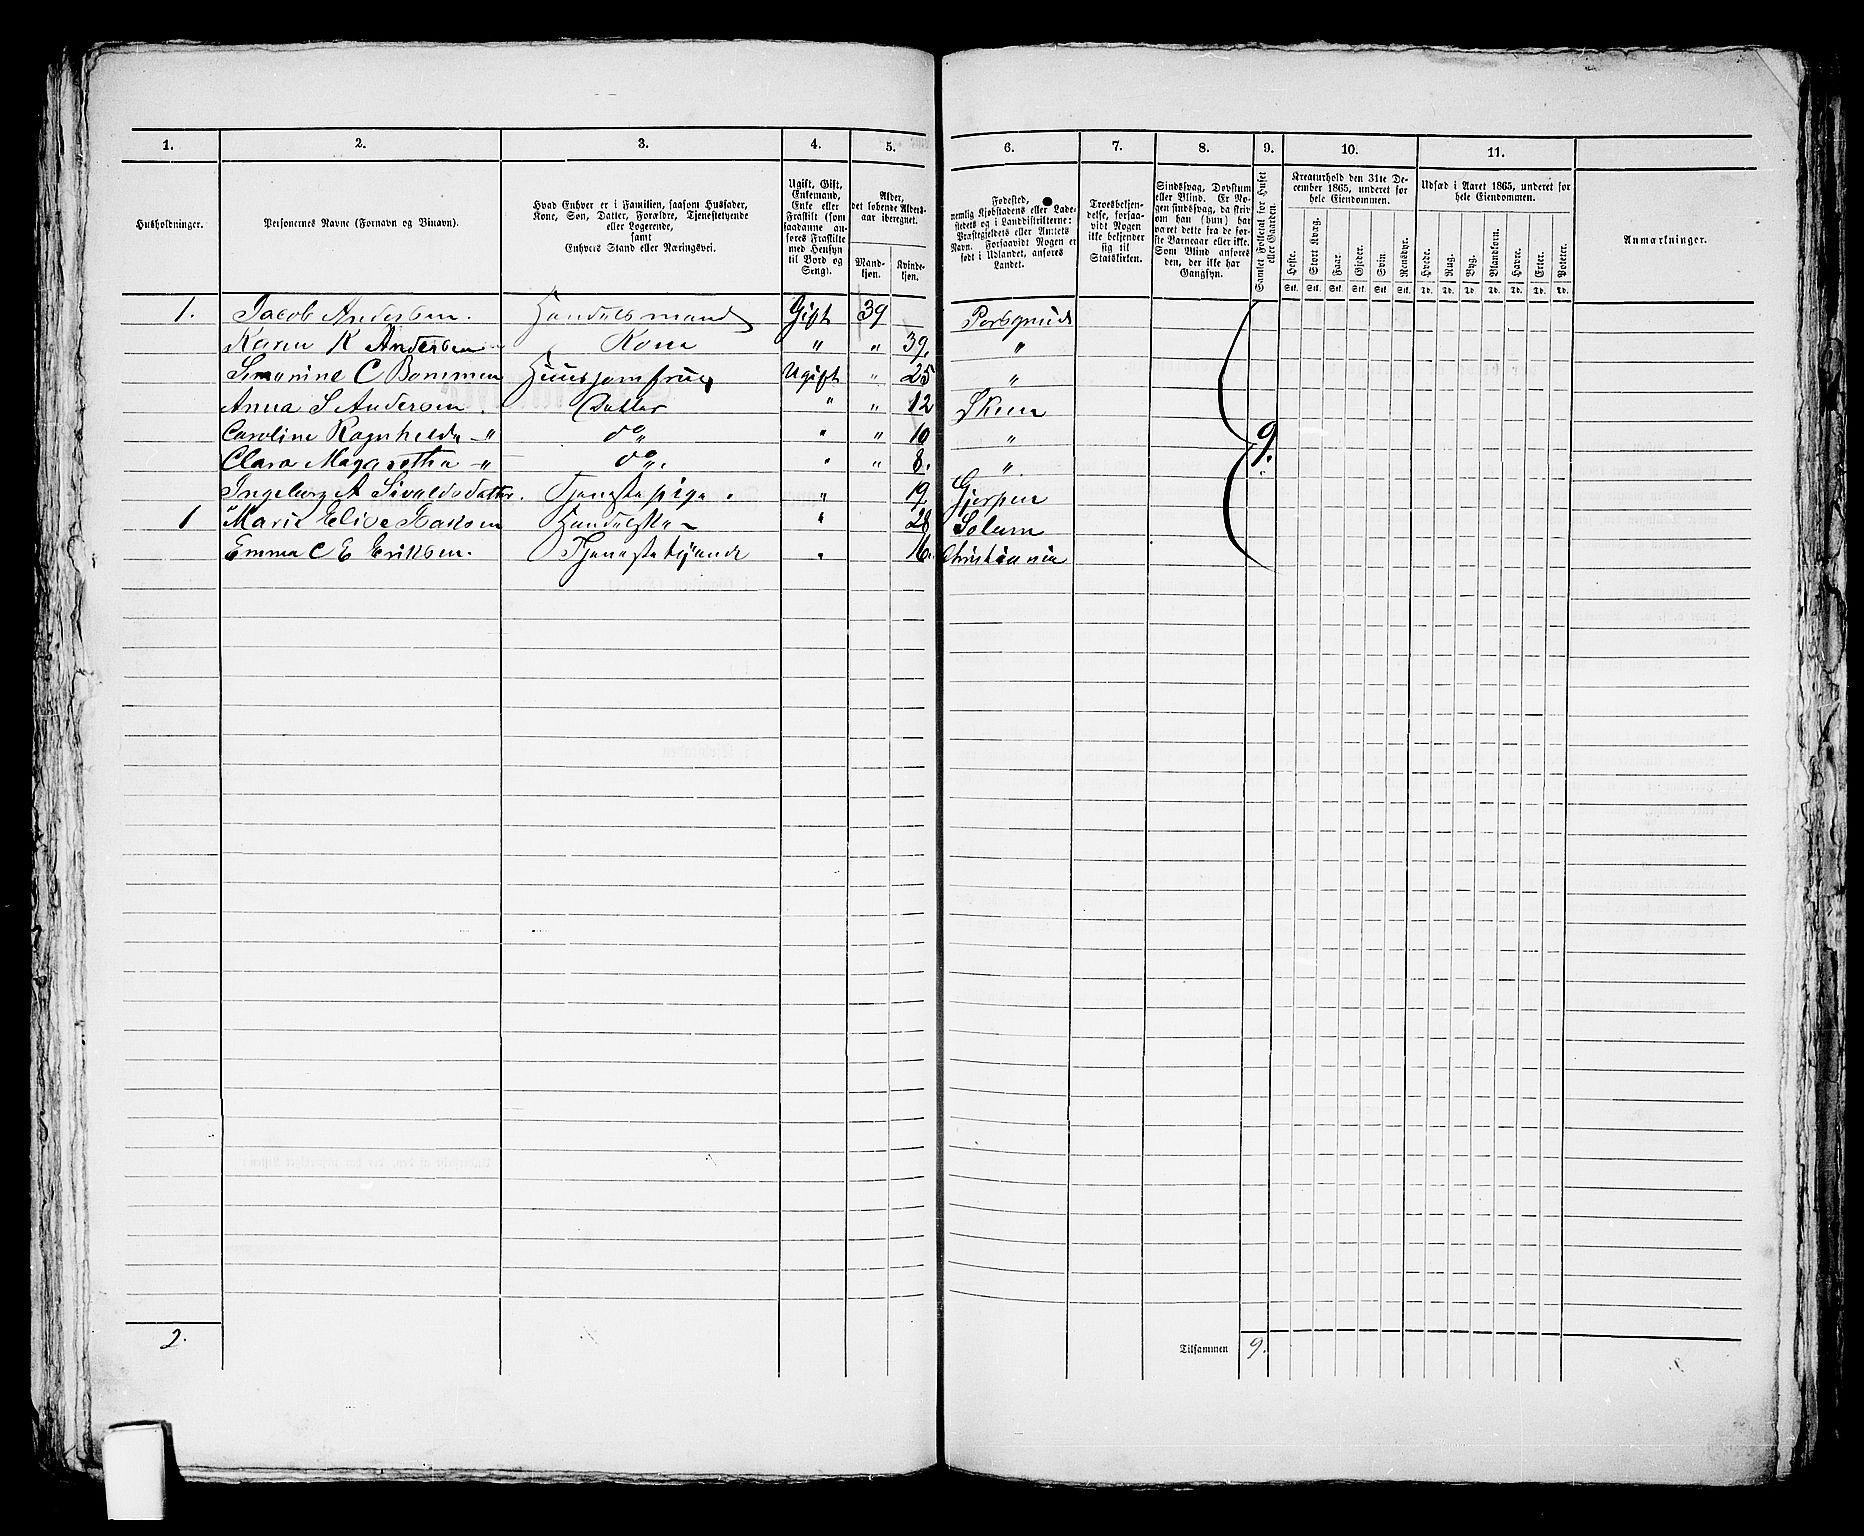 1. 2. 3. 4. 5. 6. 7. 8. 9. 10. 11.
Husholdninger.
Personernes Navne (Fornavn og Binavn).
Hvad Enhver er i Familien, saasom Husfader,
Kone, Søn, Datter, Forældre, Tjenestetyende
eller Logerende,
samt
Enhvers Stand eller Næringsvei.
Ugift, Gift,
Enkemand,
Enke eller
Fraskilt (som
saadanne an-
føres Fraskilte
med Hensyn
til Bord og
Seng).
Alder,
det løbende Alders-
aar iberegnet.
Mand-
kjøn.
Kvinde-
kjøn.
Fødested,
nemlig Kjøbstadens eller Lade-
stedets og i Landdistrikterne:
Præstegjeldets eller Amtets
Navn. Forsaavidt Nogen er
født i Udlandet, anføres
Landet.
Troesbekjen-
delse, forsaa-
vidt Nogen
ikke bekjender
sig til
Statskirken.
Sindssvag, Døvstum
eller Blind. Er No-
gen sindssvag, da skriv
om han (hun) har
været dette fra de før-
ste Barneaar eller ikke.
Som Blind anføres
den, der ikke har
Gangsyn.
Samlet Folketal for Huset
eller Gaarden.
Kreaturhold den 31te De-
cember 1865, underet for
hele Eiendommen.
Heste. Stort Kvæg. Faar. Gjeder. Svin. Rensdyr.
Stk. Stk. Stk. Stk. Stk. Stk.
Udsæd i Aaret 1865, underet for
hele Eiendommen.
Hvede. Rug. Byg. Blandkorn. Havre. Erter. Poteter.
Td. Td. Td. Td. Td. Td. Td.
Anmærkninger.
1. Jacob Andersen. Handelsmand Gift 39 Porsgrund
Karen K Andersen Kone " " 39. "
Simonine C Bommen Huusjomfrue Ugift " 25 "
Anna S Andersen. Datter " " 12 Skien
Caroline Ragnhilda -"- do " " " 10 "
Clara Magaretha -"- do " " " 8. "
9.
Ingeborg A Sivaldsdatter. Tjenestepige. " 19 Gjerpen
1 Marie Elise Isaksen " 28 Solum
Emma C E Eriksen. Tjenestetyende " 16. Christiania
2.
Tilsammen 9.